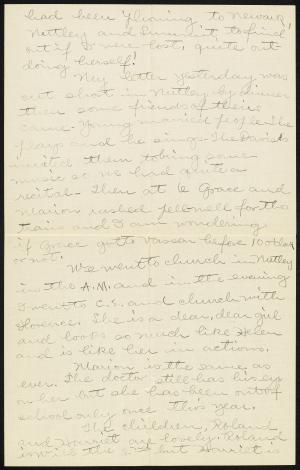 had been 'phoning to Newark,
Nuttley and Summit, to find
out if I were lost, quite out-
doing herself!
My letter yesterday was
cut short in Nuttley by dinner
then some friends of theirs
came. Young married people. She
plays and he sings. The Davis's
invited them to bring some
music so we had quite a
recital. Then at 6 Grace and
Marion rushed pellmell for the
train and I am wondering
if Grace got to Vassar before 10 o'clock
or not.
We went to church in Nuttley
in the A.M. and in the evening
I went to C.E. and church with
Florence. She is a dear, dear girl
and looks so much like Helen
and is like her in actions.
Marion is the same as
ever. The doctor still has his eye
on her but she has been out of
school only once this year.
The children, Roland
and Harriet are lovely. Roland
is with the but Harriet is